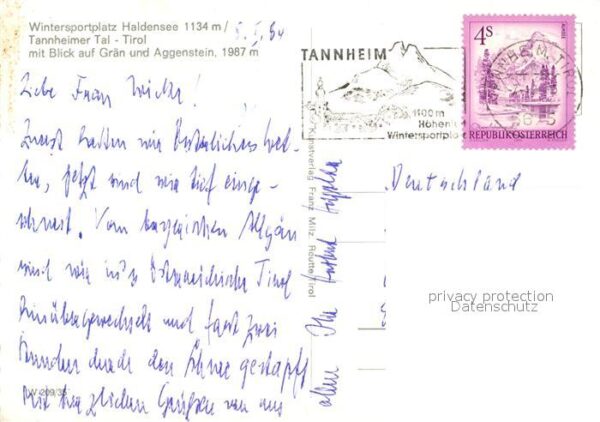 Wintersportplatz Haldensee 1134 m /
Tannheimer Tal - Tirol
mit Blick auf Grän und Aggenstein, 1987 m
Liebe Frau Wicke!
Zuerst hatten wir
jetzt sind wir tief einge-
schneit. Vom bayerischen Allgäu
sind wir in's Österreichische Tirol
hinübergewechselt und fast zwei
Stunden durch den Schnee gestapft
Mit herzlichen Grüßen von uns
allen Ihr
W 209/35
Kunstverlag Franz Milz, Reutte Tirol
TANNHEIM
1100 m
Höhen
Wintersportplo
4S
REPUBLIK ÖSTERREICH
Deutschland
privacy protection
Datenschutz